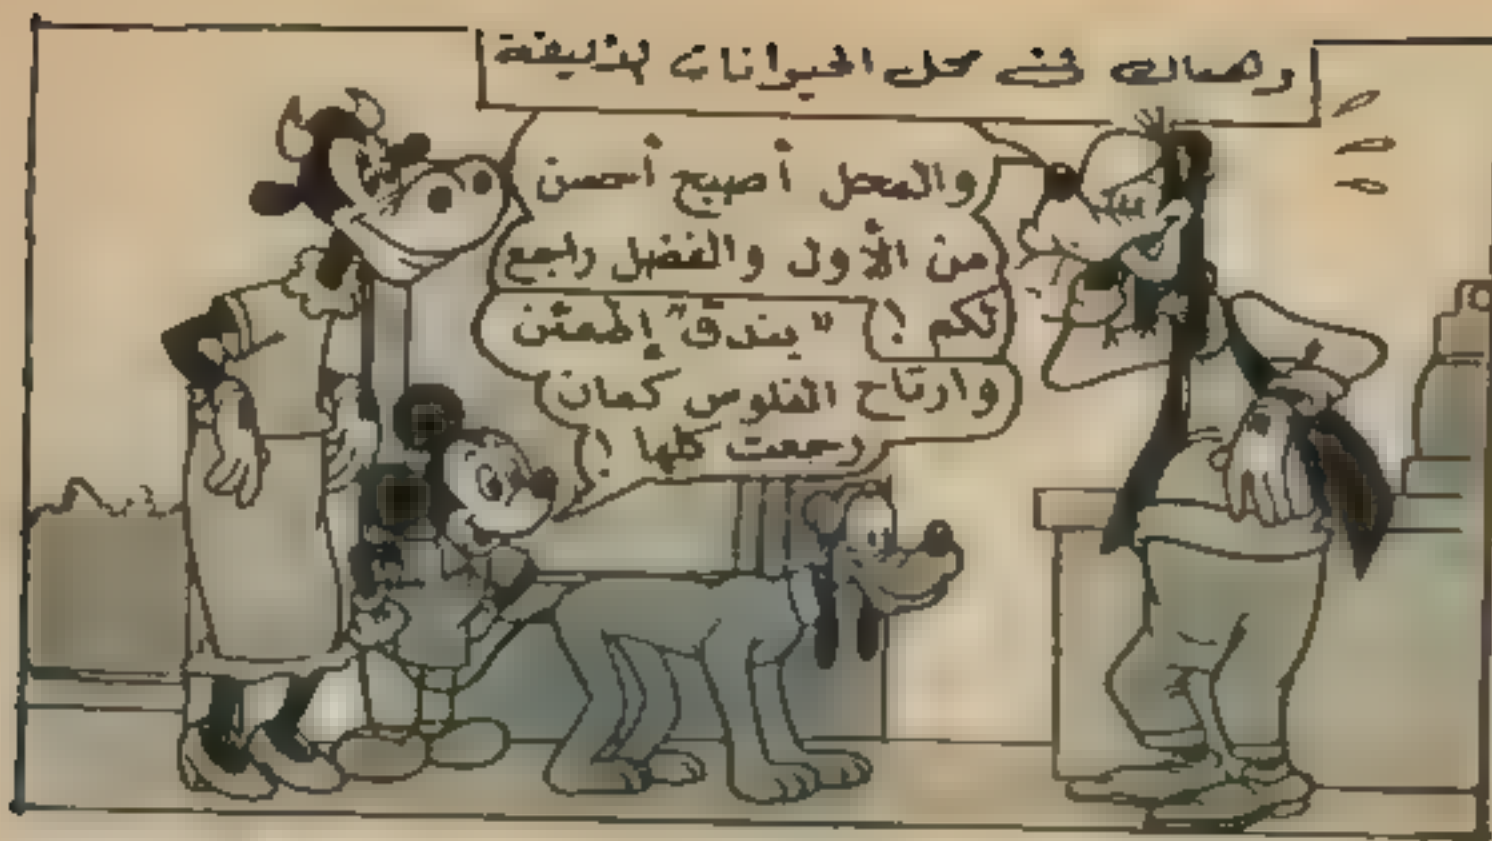 وهناك في محل الحيوانات الأليفة
والمحل أصبح أحسن
من الأول والفضل راجع
لكم !
"بندق" إطمئن
وارتاح الفلوس كمان
رجعت كلها !